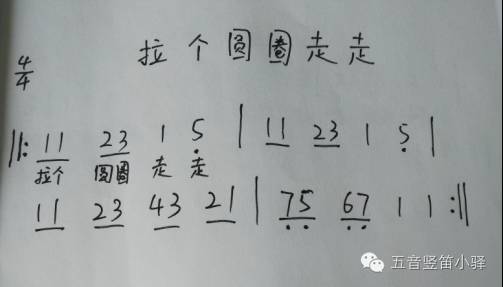 拉个圆圈走走
4/4
‖: 11 23 1 5̣ | 11 23 1 5̣ |
拉个 圆圈 走 走
11 23 43 21 | 7̣5̣ 6̣7̣ 1 1 :‖
五音竖笛小驿